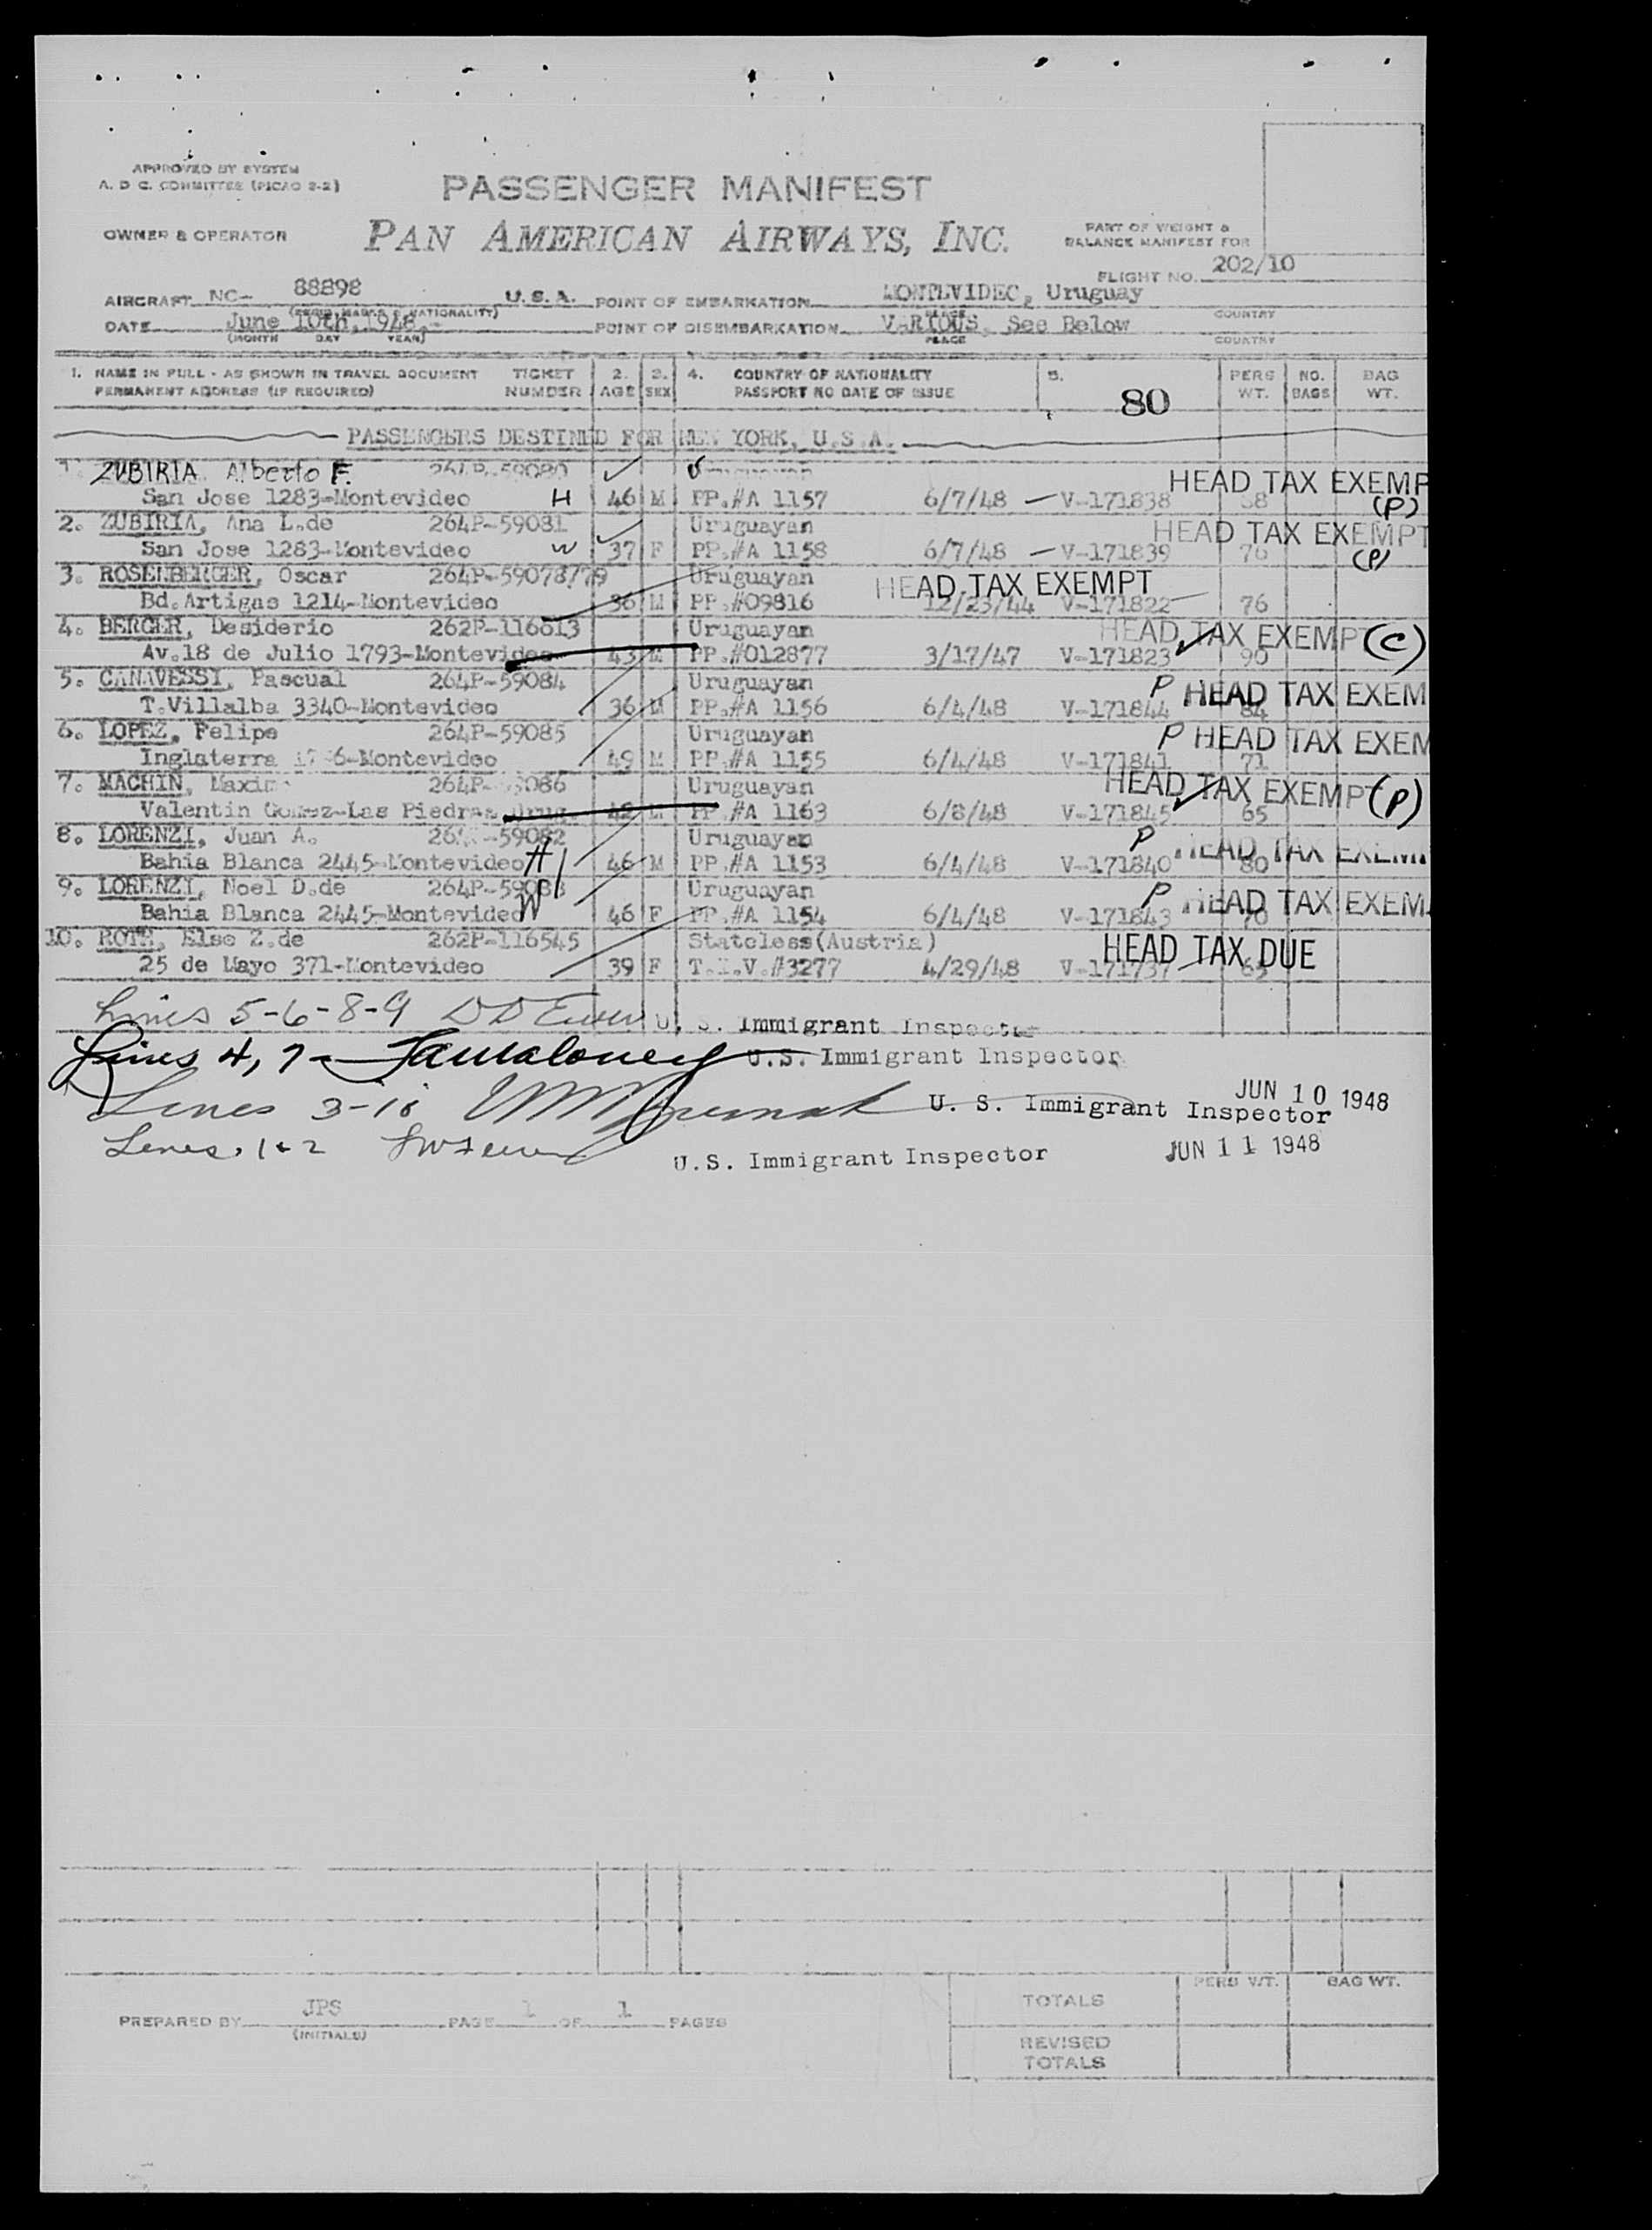 APPROVED BY SYSTEM
A. D C. COMMITTEE (PICAO 2-2)
PASSENGER MANIFEST
OWNER & OPERATOR
PAN AMERICAN AIRWAYS, INC.
PART OF WEIGHT &
BALANCE MANIFEST FOR
FLIGHT NO. 202/10
AIRCRAFT NC- 88898 U.S.A. POINT OF EMBARKATION MONTEVIDEO, Uruguay
DATE June 10th, 1948.- POINT OF DISEMBARKATION VARIOUS, See Below
(MONTH DAY YEAR) PLACE COUNTRY
1. NAME IN FULL - AS SHOWN IN TRAVEL DOCUMENT TICKET 2. 3. 4. COUNTRY OF NATIONALITY 5. PERS NO. BAG
PERMANENT ADDRESS (IF REQUIRED) NUMBER AGE SEX PASSPORT NO DATE OF ISSUE 80 WT. BAGS WT.
PASSENGERS DESTINED FOR NEW YORK, U.S.A.
1. ZUBIRIA Alberto F. 264P-59080 HEAD TAX EXEMP
San Jose 1283-Montevideo H 46 M PP.#A 1157 6/7/48 V-171838 (P)
2. ZUBIRIA, Ana L.de 264P-59081 Uruguayan HEAD TAX EXEMPT
San Jose 1283-Montevideo W 37 F PP.#A 1158 6/7/48 V-171839 76 (P)
3. ROSELBERGER, Oscar 264P-59078/79 Uruguayan HEAD TAX EXEMPT
Bd.Artigas 1214-Montevideo 36 M PP.#09816 12/23/44 V-171822 76
4. BERGER, Desiderio 262P-116613 Uruguayan HEAD TAX EXEMP (C)
Av.18 de Julio 1793-Montevideo 43 M PP.#012877 3/17/47 V-171823 90
5. CANAVESSI, Pascual 264P-59084 Uruguayan P HEAD TAX EXEM
T.Villalba 3340-Montevideo 36 M PP.#A 1156 6/4/48 V-171844 84
6. LOPEZ, Felipe 264P-59085 Uruguayan P HEAD TAX EXEM
Inglaterra Montevideo 49 M PP.#A 1155 6/4/48 V-171841 71
7. MACHIN, 264P- Uruguayan HEAD TAX EXEMPT (P)
Valentin Gomez-Las Piedras 42 M PP #A 1163 6/8/48 V-171845 65
8. LORENZI, Juan A. 59082 Uruguayan P HEAD TAX EXEM
Bahia Blanca 2445-Montevideo H 46 M PP.#A 1153 6/4/48 V-171840 80
9. LORENZI, Noel D.de 264P-59083 Uruguayan P HEAD TAX EXEM
Bahia Blanca 2445-Montevideo W 46 F PP.#A 1154 6/4/48 V-171843 70
10. ROTH, Else Z.de 262P-116545 Stateless(Austria) HEAD TAX DUE
25 de Mayo 371-Montevideo 39 F T.I.V.#3277 4/29/48 V-171737 65
Lines 5-6-8-9 U. S. Immigrant Inspector
Lines 4, 7 - U.S. Immigrant Inspector
JUN 10 1948
Lines 3-10 U. S. Immigrant Inspector
Lines, 1 & 2 U.S. Immigrant Inspector JUN 11 1948
PERS WT. BAG WT.
TOTALS
PREPARED BY JPS PAGE 1 OF 1 PAGES
(INITIALS)
REVISED
TOTALS